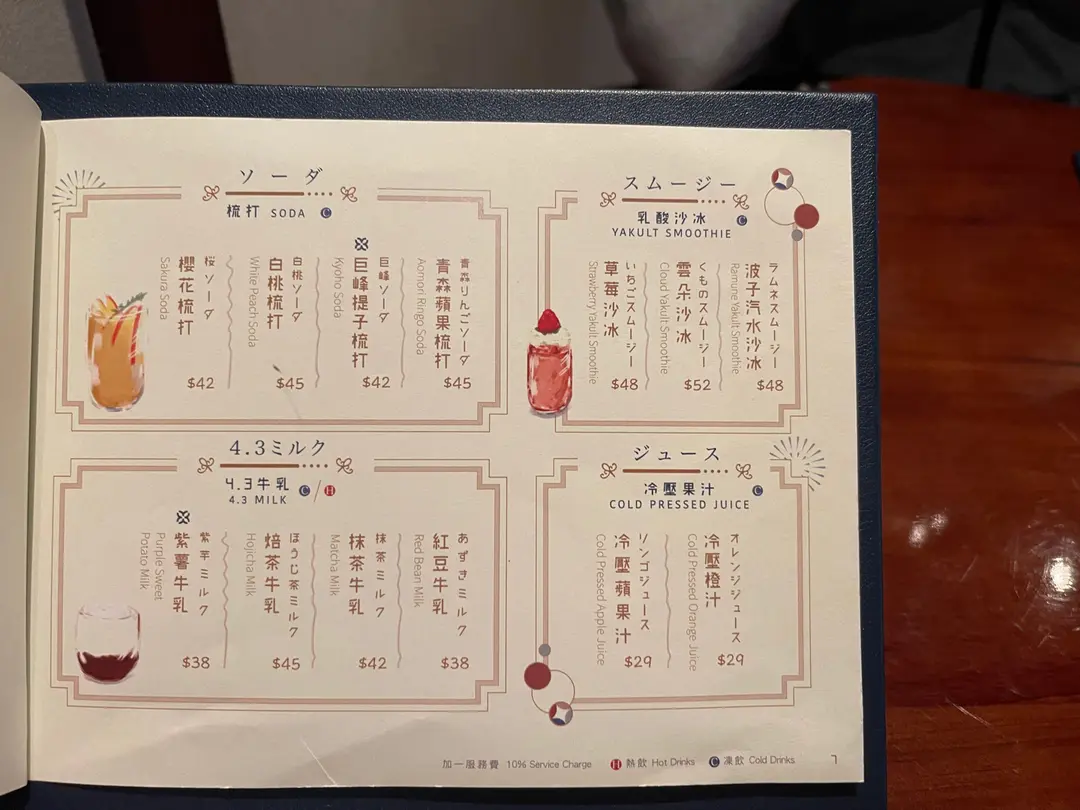 ソーダ
梳打 SODA C
青森りんごソーダ
青森蘋果梳打
Aomori Ringo Soda
$45
巨峰ソーダ
巨峰提子梳打
Kyoho Soda
$42
白桃ソーダ
白桃梳打
White Peach Soda
$45
桜ソーダ
櫻花梳打
Sakura Soda
$42
スムージー
乳酸沙冰 C
YAKULT SMOOTHIE
ラムネスムージー
波子汽水沙冰
Ramune Yakult Smoothie
$48
くものスムージー
雲朵沙冰
Cloud Yakult Smoothie
$52
いちごスムージー
草莓沙冰
Strawberry Yakult Smoothie
$48
4.3ミルク
4.3牛乳 C/H
4.3 MILK
あずきミルク
紅豆牛乳
Red Bean Milk
$38
抹茶ミルク
抹茶牛乳
Matcha Milk
$42
ほうじ茶ミルク
焙茶牛乳
Hojicha Milk
$45
紫芋ミルク
紫薯牛乳
Purple Sweet
Potato Milk
$38
ジュース
冷壓果汁 C
COLD PRESSED JUICE
オレンジジュース
冷壓橙汁
Cold Pressed Orange Juice
$29
リンゴジュース
冷壓蘋果汁
Cold Pressed Apple Juice
$29
加一服務費 10% Service Charge H 熱飲 Hot Drinks C 凍飲 Cold Drinks 7